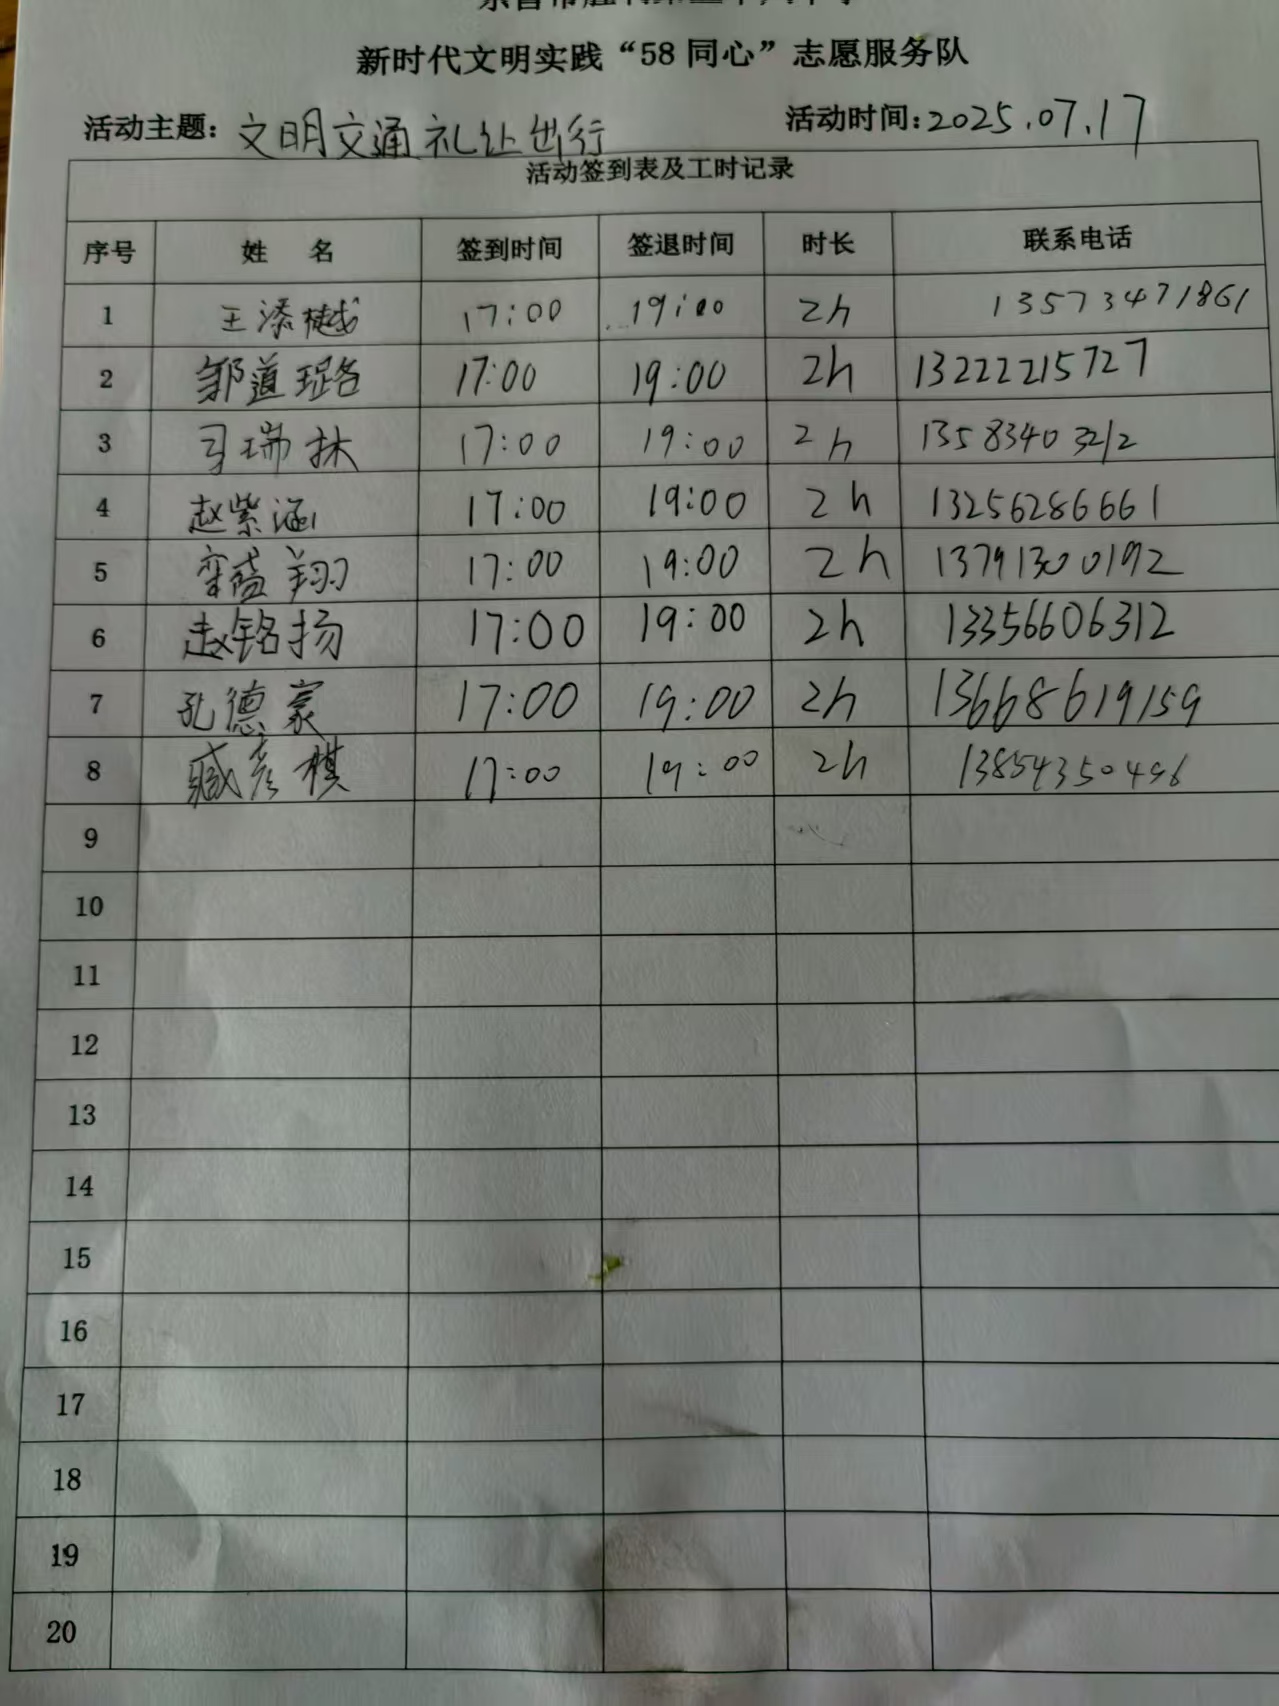 新时代文明实践“58同心”志愿服务队
活动主题：文明交通礼让出行 活动时间：2025.07.17
活动签到表及工时记录
序号 姓 名 签到时间 签退时间 时长 联系电话
1 王添樾 17:00 19:00 2h 13573471861
2 邹道琚 17:00 19:00 2h 13222215727
3 司瑞林 17:00 19:00 2h 13583403212
4 赵紫涵 17:00 19:00 2h 13256286661
5 栾盛翔 17:00 19:00 2h 13791300192
6 赵铭扬 17:00 19:00 2h 13356606312
7 孔德豪 17:00 19:00 2h 13668619159
8 臧彦棋 17:00 19:00 2h 13854350496
9
10
11
12
13
14
15
16
17
18
19
20